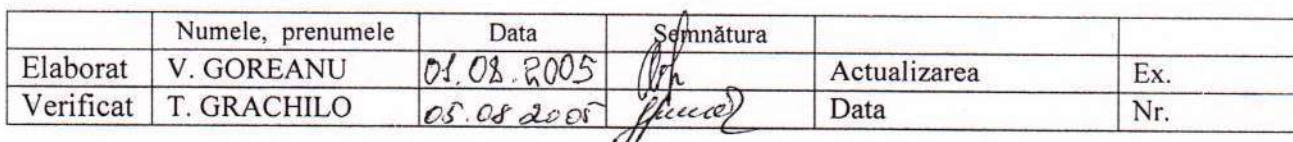 Numele, prenumele Data Semnătura
Elaborat V. GOREANU 01.08.2005 Actualizarea Ex.
Verificat T. GRACHILO 05.08 2005 Data Nr.